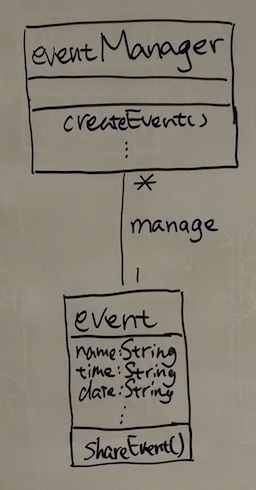 eventManager
createEvent()
⋮
*
manage
1
event
name:String
time:String
date:String
⋮
shareEvent()